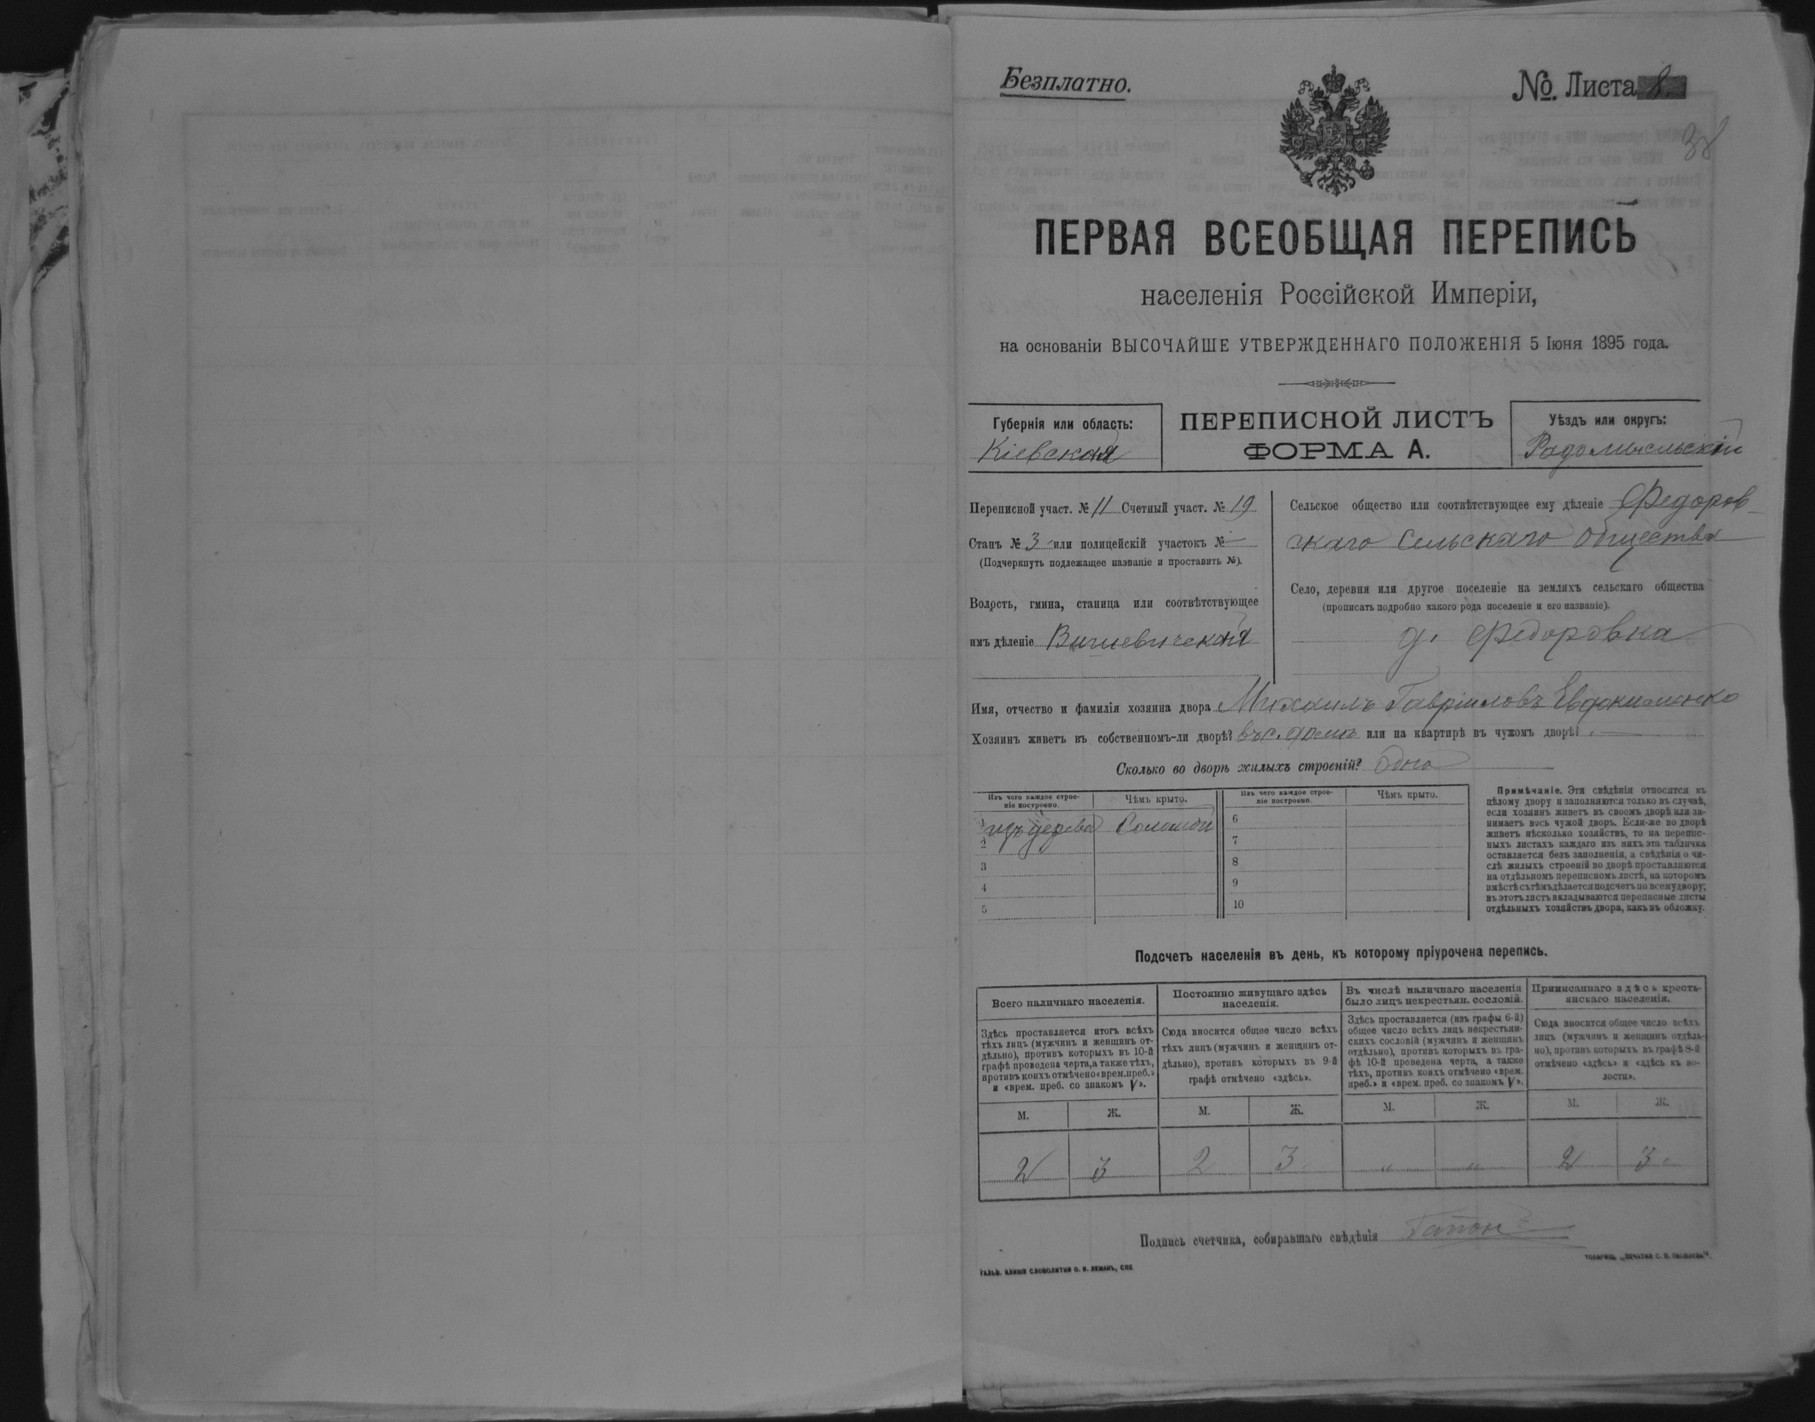 Безплатно.
№ Листа 8.
38
ПЕРВАЯ ВСЕОБЩАЯ ПЕРЕПИСЬ
населенія Россійской Имперіи,
на основаніи ВЫСОЧАЙШЕ УТВЕРЖДЕННАГО ПОЛОЖЕНІЯ 5 Іюня 1895 года.
Губернія или область:
Кіевская
ПЕРЕПИСНОЙ ЛИСТЪ
ФОРМА А.
Уѣздъ или округъ:
Радомысльскій
Переписной участ. № 11 Счетный участ. № 19
Станъ № 3 или полицейскій участокъ №
(Подчеркнуть подлежащее названіе и проставить №).
Волость, гмина, станица или соотвѣтствующее
имъ дѣленіе Вышевическая
Сельское общество или соотвѣтствующее ему дѣленіе Федоров
скаго сельскаго общества
Село, деревня или другое поселеніе на земляхъ сельскаго общества
(прописать подробно какого рода поселеніе и его названіе).
д. Федоровка
Имя, отчество и фамилія хозяина двора Михаилъ Гавріиловъ Евдокименко
Хозяинъ живетъ въ собственномъ-ли дворѣ? въ с. домѣ или на квартирѣ въ чужомъ дворѣ?
Сколько во дворѣ жилыхъ строеній? одно
Изъ чего каждое строе-
ніе построено.
Чѣмъ крыто.
Изъ чего каждое строе-
ніе построено.
Чѣмъ крыто.
1 изъ дерева Соломой
2
3
4
5
6
7
8
9
10
Примѣчаніе. Эти свѣдѣнія относятся къ
цѣлому двору и заполняются только въ случаѣ,
если хозяинъ живетъ въ своемъ дворѣ или за-
нимаетъ весь чужой дворъ. Если-же во дворѣ
живетъ нѣсколько хозяйствъ, то на перепис-
ныхъ листахъ каждаго изъ нихъ эта табличка
оставляется безъ заполненія, а свѣдѣнія о чи-
слѣ жилыхъ строеній во дворѣ проставляются
на отдѣльномъ переписномъ листѣ, на которомъ
вмѣстѣ съ тѣмъ дѣлается подсчетъ по всему двору;
въ этотъ листъ вкладываются переписные листы
отдѣльныхъ хозяйствъ двора, какъ въ обложку.
Подсчетъ населенія въ день, къ которому пріурочена перепись.
Всего наличнаго населенія.
Здѣсь проставляется итогъ всѣхъ
тѣхъ лицъ (мужчинъ и женщинъ от-
дѣльно), противъ которыхъ въ 10-й
графѣ проведена черта, а также тѣхъ,
противъ коихъ отмѣчено «врем. преб.»
и «врем. преб. со знакомъ V».
Постоянно живущаго здѣсь
населенія.
Сюда вносится общее число всѣхъ
тѣхъ лицъ (мужчинъ и женщинъ от-
дѣльно), противъ которыхъ въ 9-й
графѣ отмѣчено «здѣсь».
Въ числѣ наличнаго населенія
было лицъ некрестьян. сословій.
Здѣсь проставляется (изъ графы 6-й)
общее число всѣхъ лицъ некрестьян-
скихъ сословій (мужчинъ и женщинъ
отдѣльно), противъ которыхъ въ гра-
фѣ 10-й проведена черта, а также
тѣхъ, противъ коихъ отмѣчено «врем.
преб.» и «врем. преб. со знакомъ V».
Приписаннаго здѣсь кресть-
янскаго населенія.
Сюда вносится общее число всѣхъ
лицъ (мужчинъ и женщинъ отдѣль-
но), противъ которыхъ въ графѣ 8-й
отмѣчено «здѣсь» и «здѣсь въ во-
лости».
М. Ж. М. Ж. М. Ж. М. Ж.
2 3 2 3 „ „ 2 3
Подпись счетчика, собиравшаго свѣдѣнія Гапон
ГАЛЬВ. КЛИШЕ СЛОВОЛИТНИ О. И. ЛЕМАНЪ, СПБ.
ТОВАРИЩ. „ПЕЧАТНЯ С. П. ЯКОВЛЕВА“.